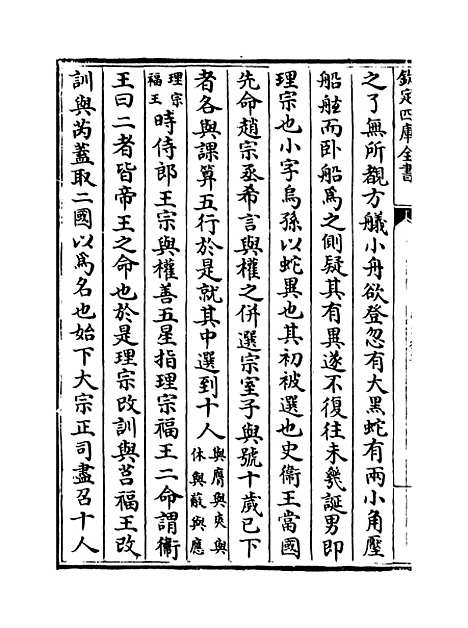 欽定四庫全書
之了無所覩方艤小舟欲登忽有大黑蛇有兩小角壓
船舷而卧船為之側疑其有異遂不復往未幾誕男即
理宗也小字烏孫以蛇異也其初被選也史衞王當國
先命趙宗丞希言與權之併選宗室子與號十歲已下
者各與課算五行於是就其中選到十人與膺與奭與休與蔽與應
理宗福王時侍郎王宗與權善五星指理宗福王二命謂衞
王曰二者皆帝王之命也於是理宗改訓與莒福王改
訓與芮蓋取二國以為名也始下大宗正司盡召十人